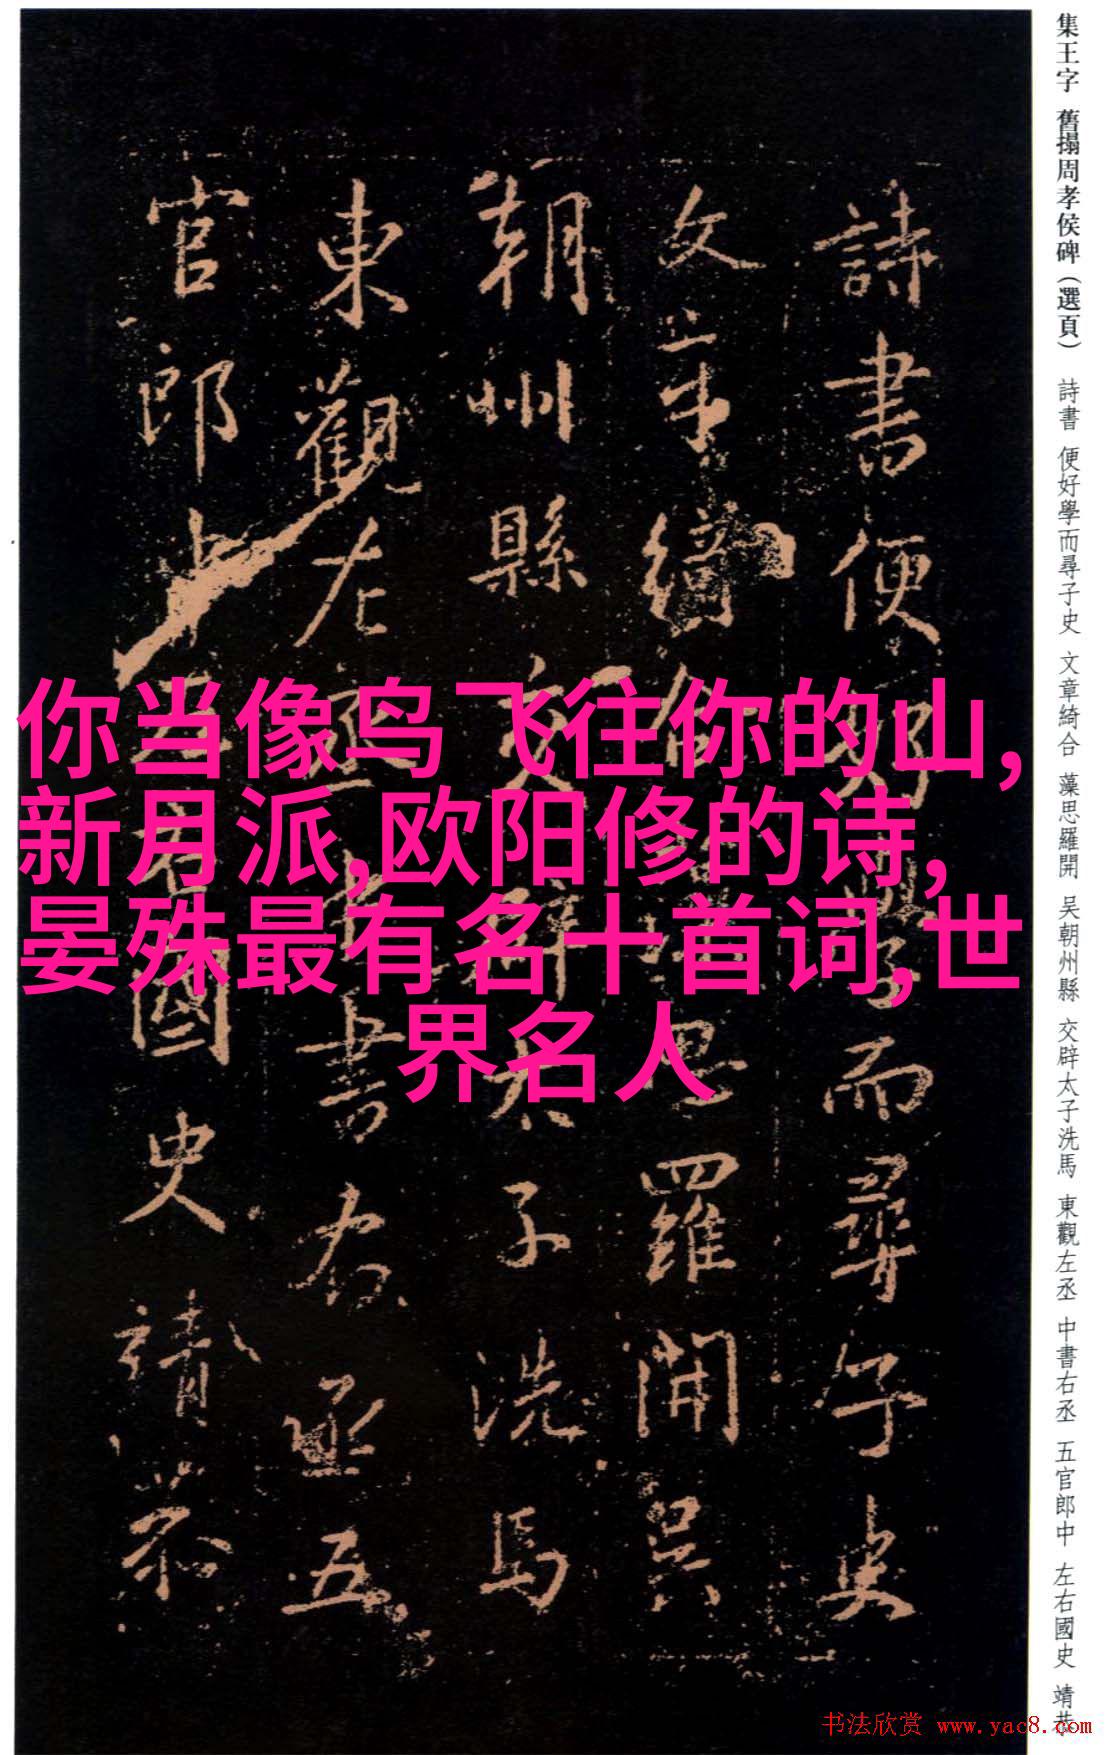 集王字 舊搨周孝侯碑（選頁） 詩書 便好學而尋子史 文章綺合 藻思羅開 吳朝州縣 交辟太子洗馬 東觀左丞 中書右丞 五官郎中 左右國史 靖恭
詩書便好學而尋子史
文章綺合藻思羅開吳
朝州縣交辟太子洗馬
東觀左丞中書右丞五
官郎中左右國史靖恭
你当像鸟飞往你的山,
新月派,欧阳修的诗,
晏殊最有名十首词,世
界名人
书法欣赏 www.yac8.com